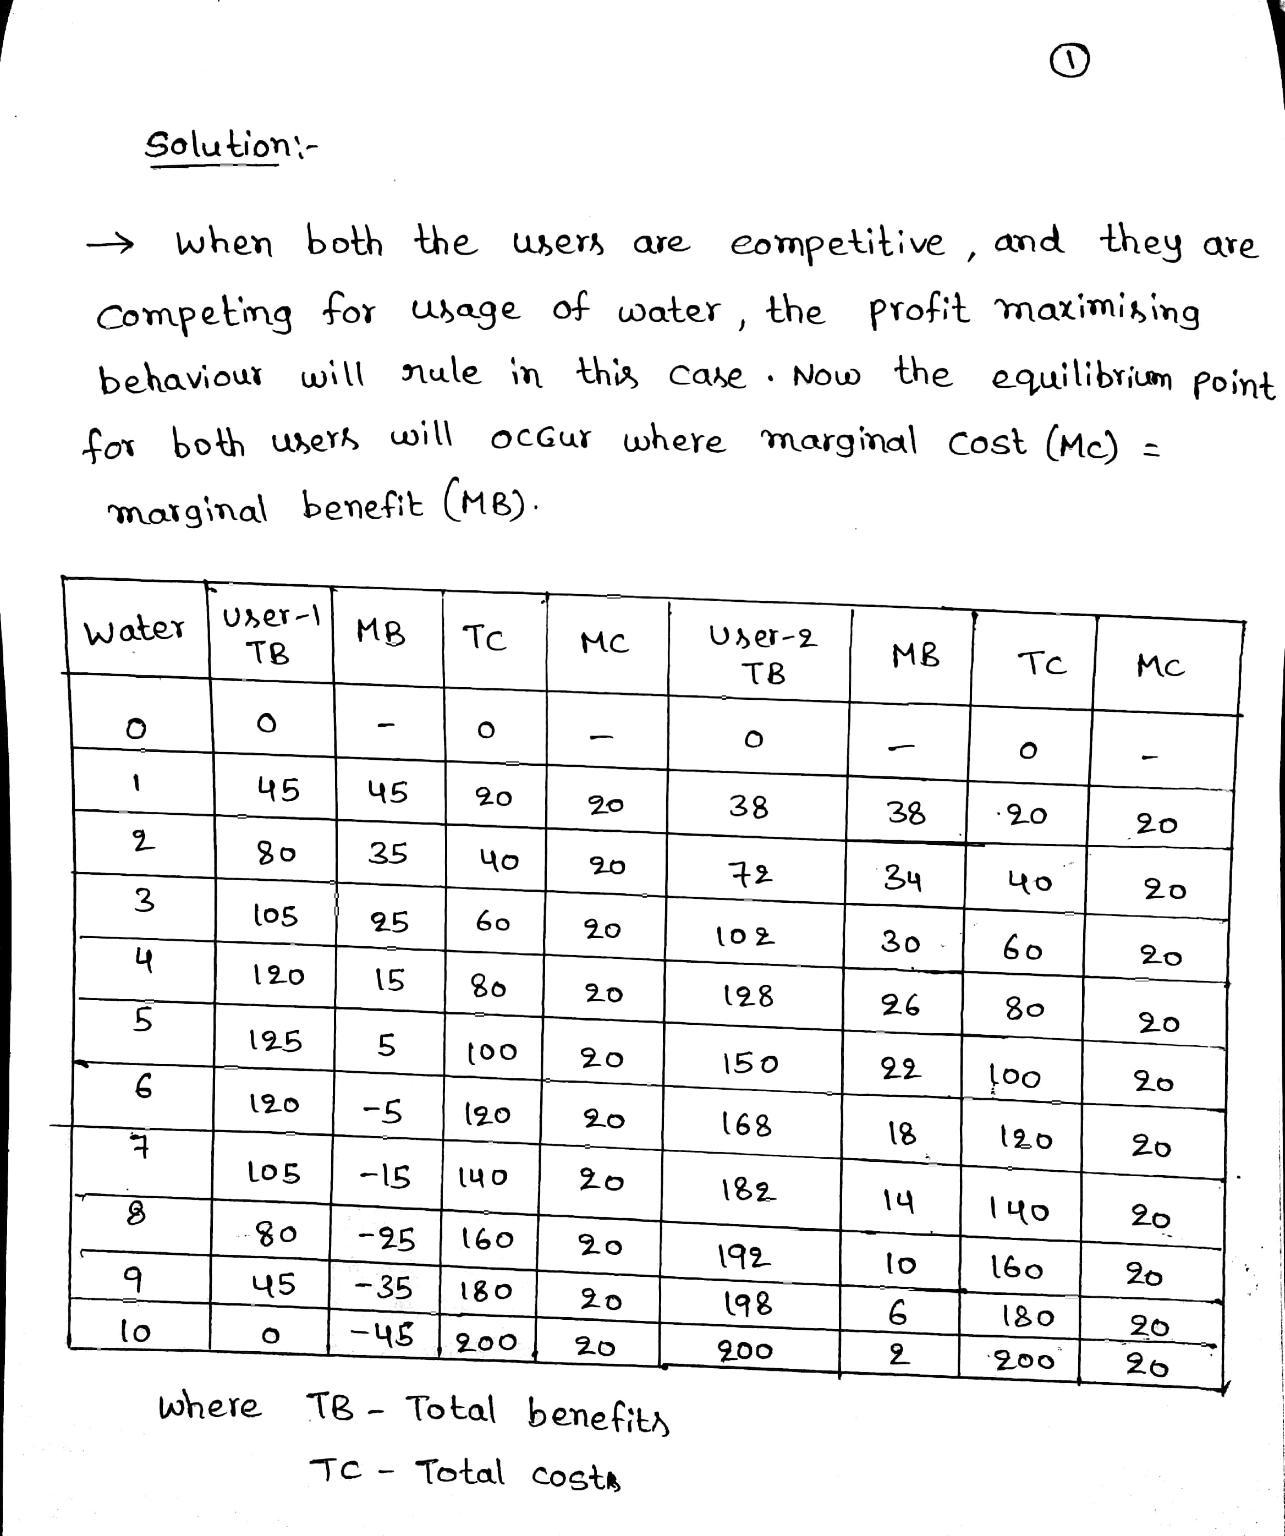 1
Solution:-
→ when both the users are competitive, and they are
competing for usage of water, the profit maximising
behaviour will rule in this case. Now the equilibrium point
for both users will occur where marginal cost (MC) =
marginal benefit (MB).
Water | User-1 TB | MB | TC | MC | User-2 TB | MB | TC | MC
0 | 0 | - | 0 | - | 0 | - | 0 | -
1 | 45 | 45 | 20 | 20 | 38 | 38 | 20 | 20
2 | 80 | 35 | 40 | 20 | 72 | 34 | 40 | 20
3 | 105 | 25 | 60 | 20 | 102 | 30 | 60 | 20
4 | 120 | 15 | 80 | 20 | 128 | 26 | 80 | 20
5 | 125 | 5 | 100 | 20 | 150 | 22 | 100 | 20
6 | 120 | -5 | 120 | 20 | 168 | 18 | 120 | 20
7 | 105 | -15 | 140 | 20 | 182 | 14 | 140 | 20
8 | 80 | -25 | 160 | 20 | 192 | 10 | 160 | 20
9 | 45 | -35 | 180 | 20 | 198 | 6 | 180 | 20
10 | 0 | -45 | 200 | 20 | 200 | 2 | 200 | 20
where TB - Total benefits
TC - Total costs